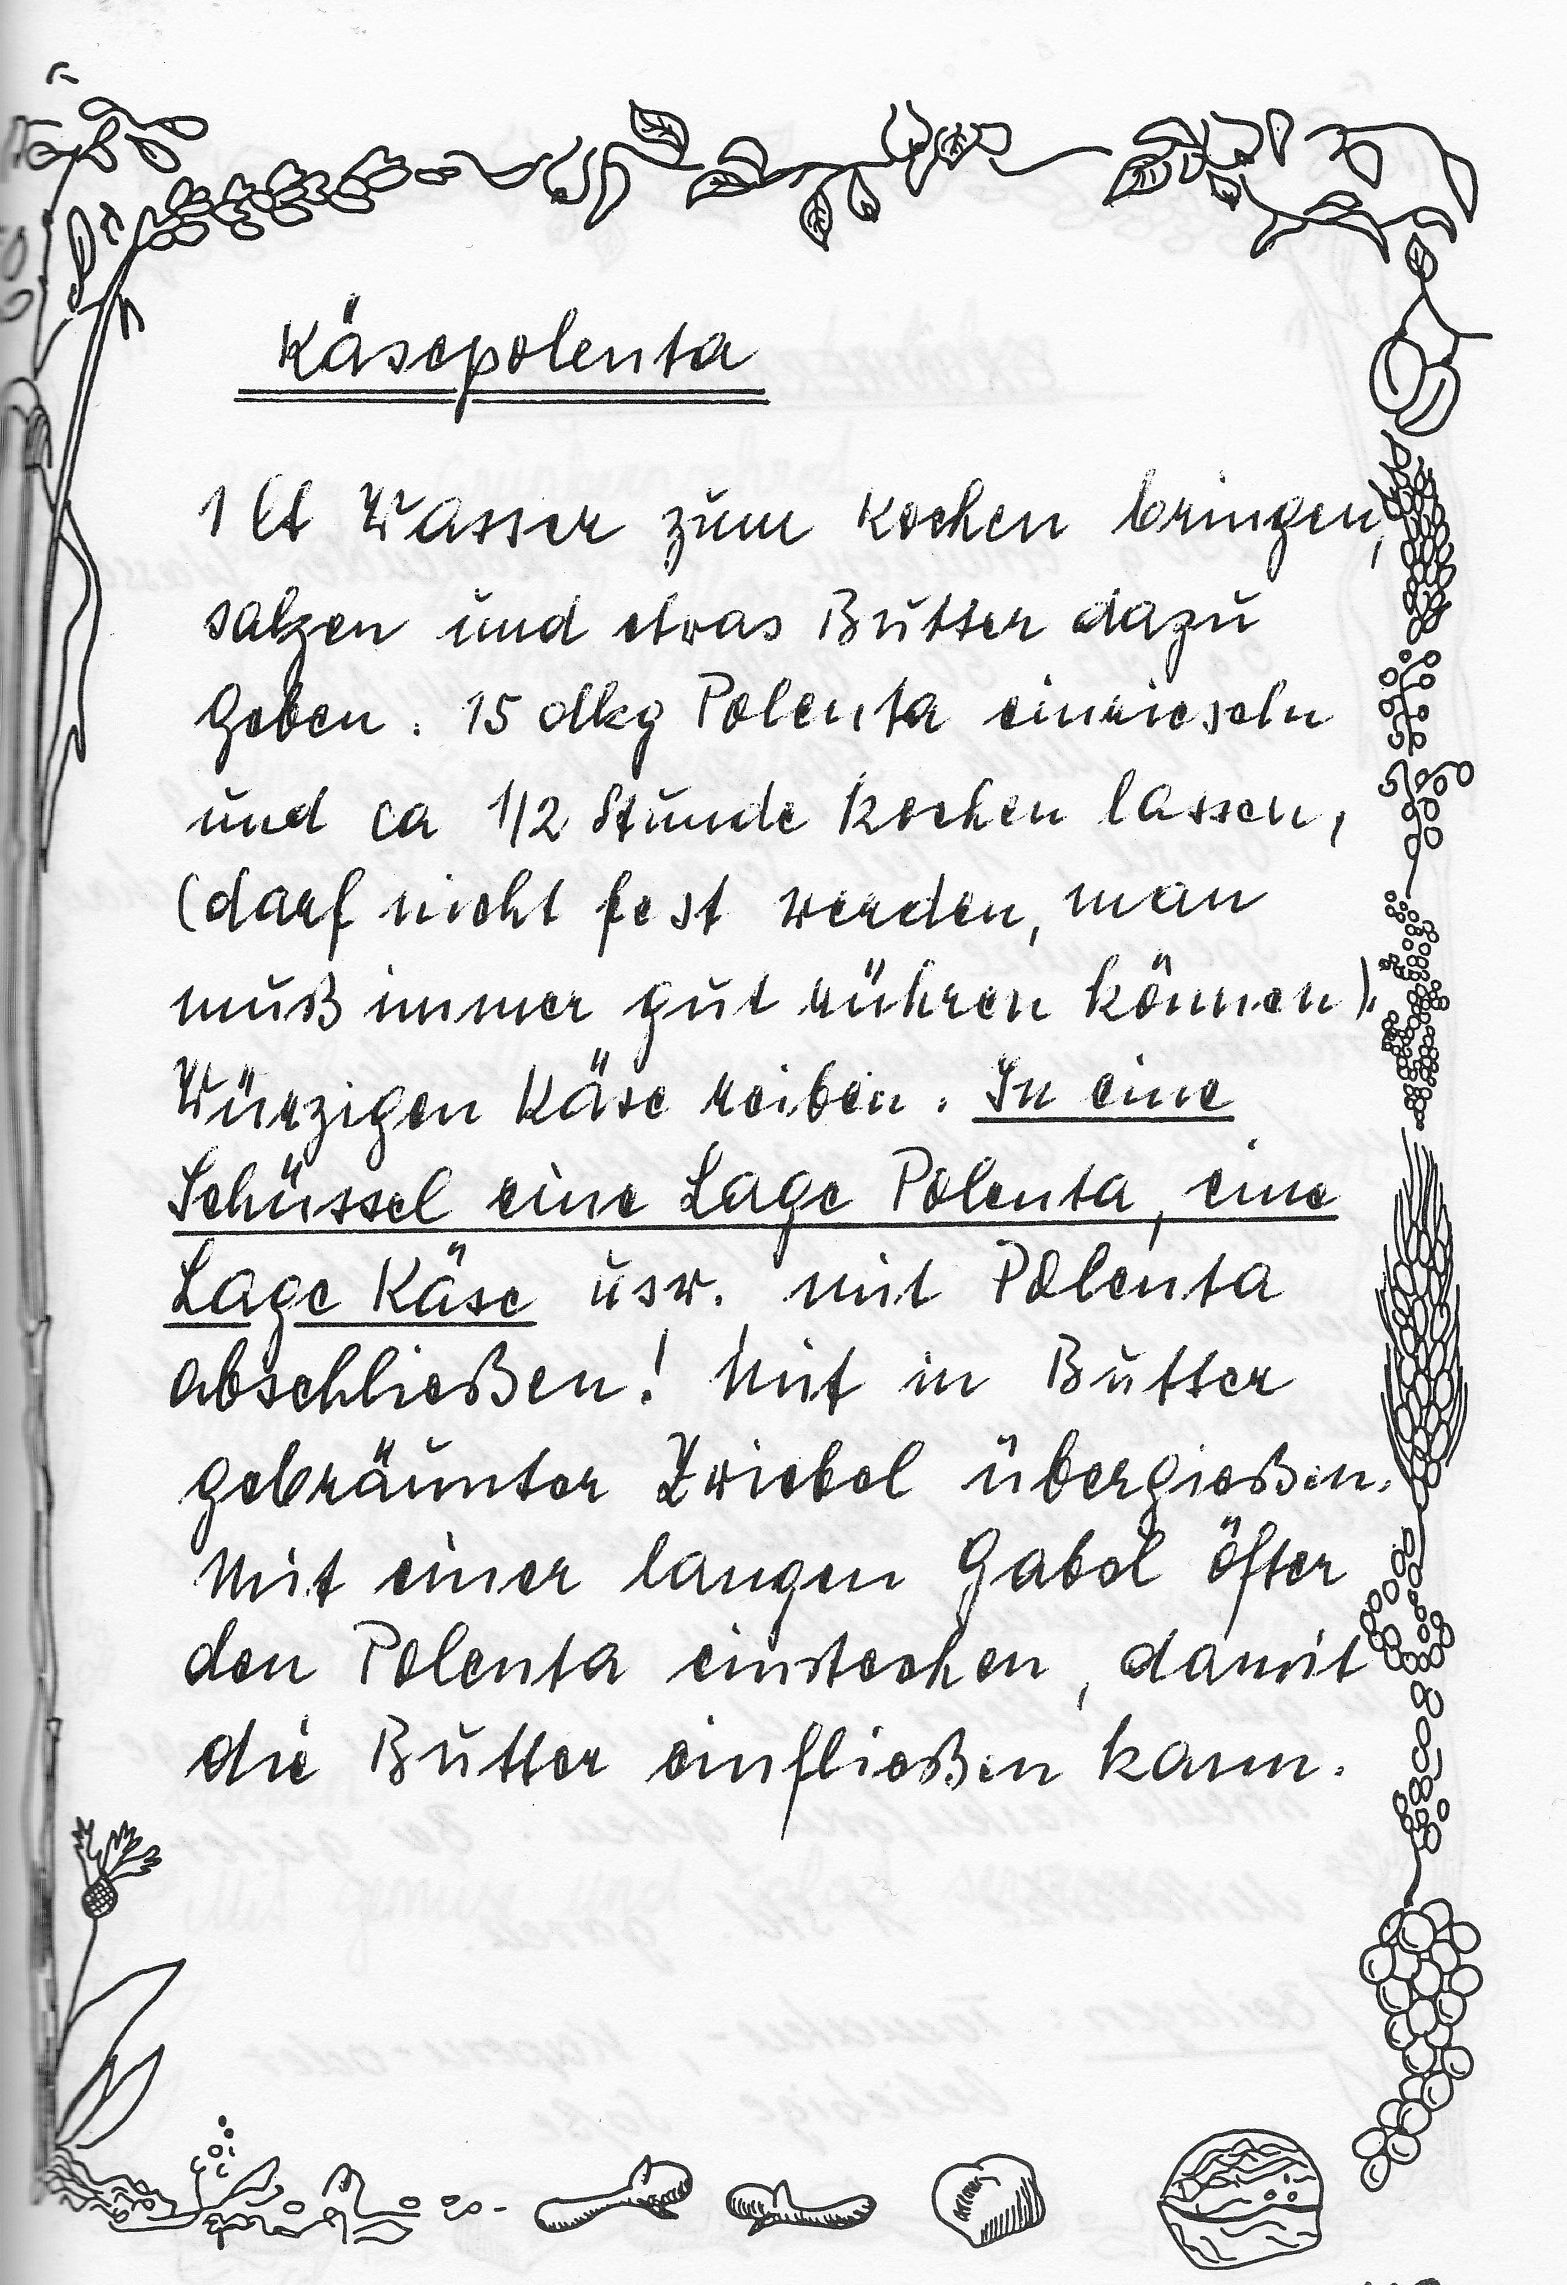 Käsepolenta
1 lt Wasser zum Kochen bringen,
salzen und etwas Butter dazu
geben. 15 dkg Polenta einrieseln
und ca 1/2 Stunde kochen lassen,
(darf nicht fest werden, man
muß immer gut rühren können).
Würzigen Käse reiben. In eine
Schüssel eine Lage Polenta, eine
Lage Käse usw. mit Polenta
abschließen! Mit in Butter
gebräunter Zwiebel übergießen.
Mit einer langen Gabel öfter
den Polenta einstechen, damit
die Butter einfließen kann.